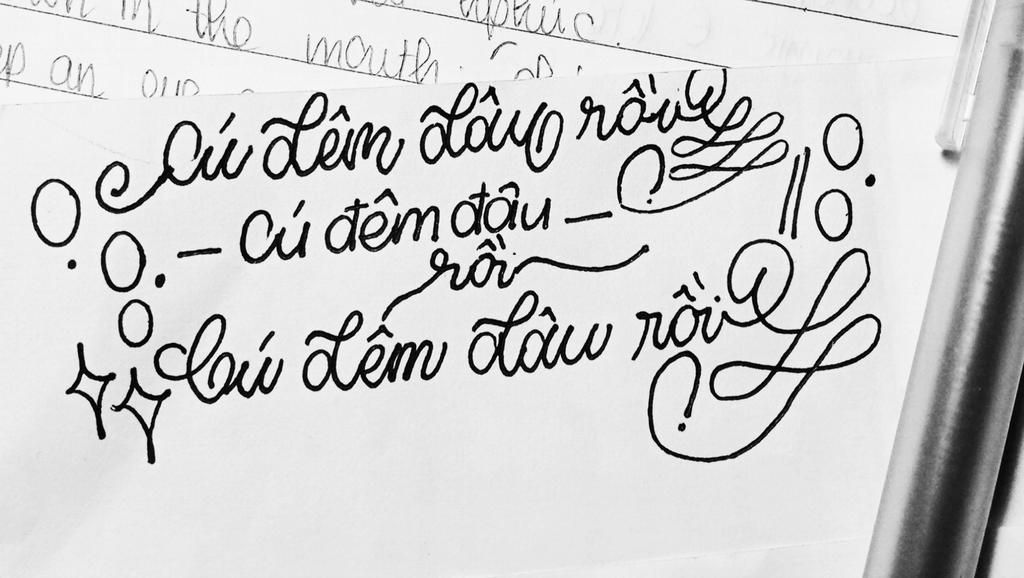 in the mouth
an
Cú đêm đâu rồi
— Cú đêm đâu —
rồi
Cú đêm đâu rồi